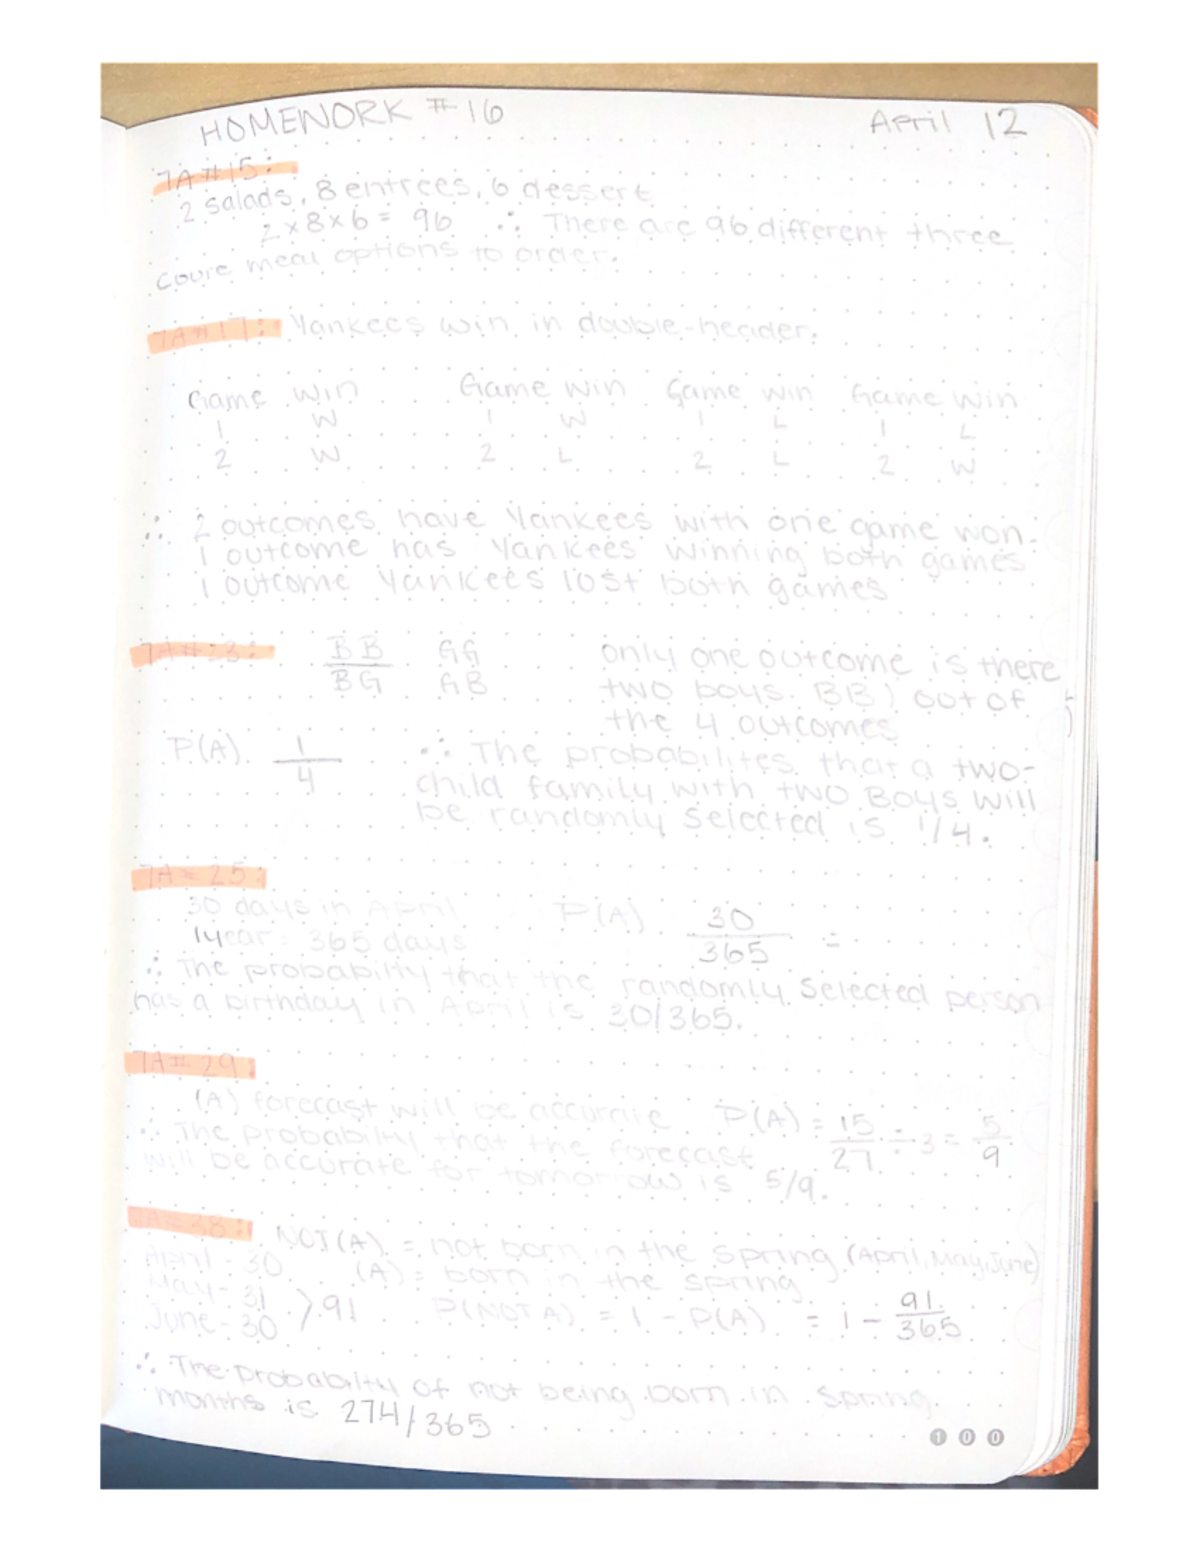 HOMEWORK #16 April 12
7A#15:
2 salads, 8 entrees, 6 dessert
2×8×6= 96 ∴ There are 96 different three
coure meal options to order.
7A#17: Yankees win in double-header.
Game win Game win Game win Game win
1 W 1 W 1 L 1 L
2 W 2 L 2 L 2 W
∴ 2 outcomes have Yankees with one game won.
1 outcome has Yankees winning both games
1 outcome Yankees lost both games
7A#23: BB GG only one outcome is there
BG GB two boys. BB) out of
the 4 outcomes
P(A) 1/4 ∴ The probabilites that a two-
child family with two Boys will
be randomly selected is 1/4.
7A#25:
30 days in April P(A) 30/365 =
1 year = 365 days
∴ The probabilty that the randomly selected person
has a birthday in April is 30/365.
7A#29:
(A) forecast will be accurate P(A) = 15/27 ÷ 3 = 5/9
∴ The probabilty that the forecast
will be accurate for tomorrow is 5/9.
7A#38: NOT(A) = not born in the spring (April, May, June)
April - 30 (A) = born in the spring
May - 31 >91 P(NOT A) = 1 - P(A) = 1 - 91/365
June - 30
∴ The probabilty of not being born in spring
months is 274/365
100